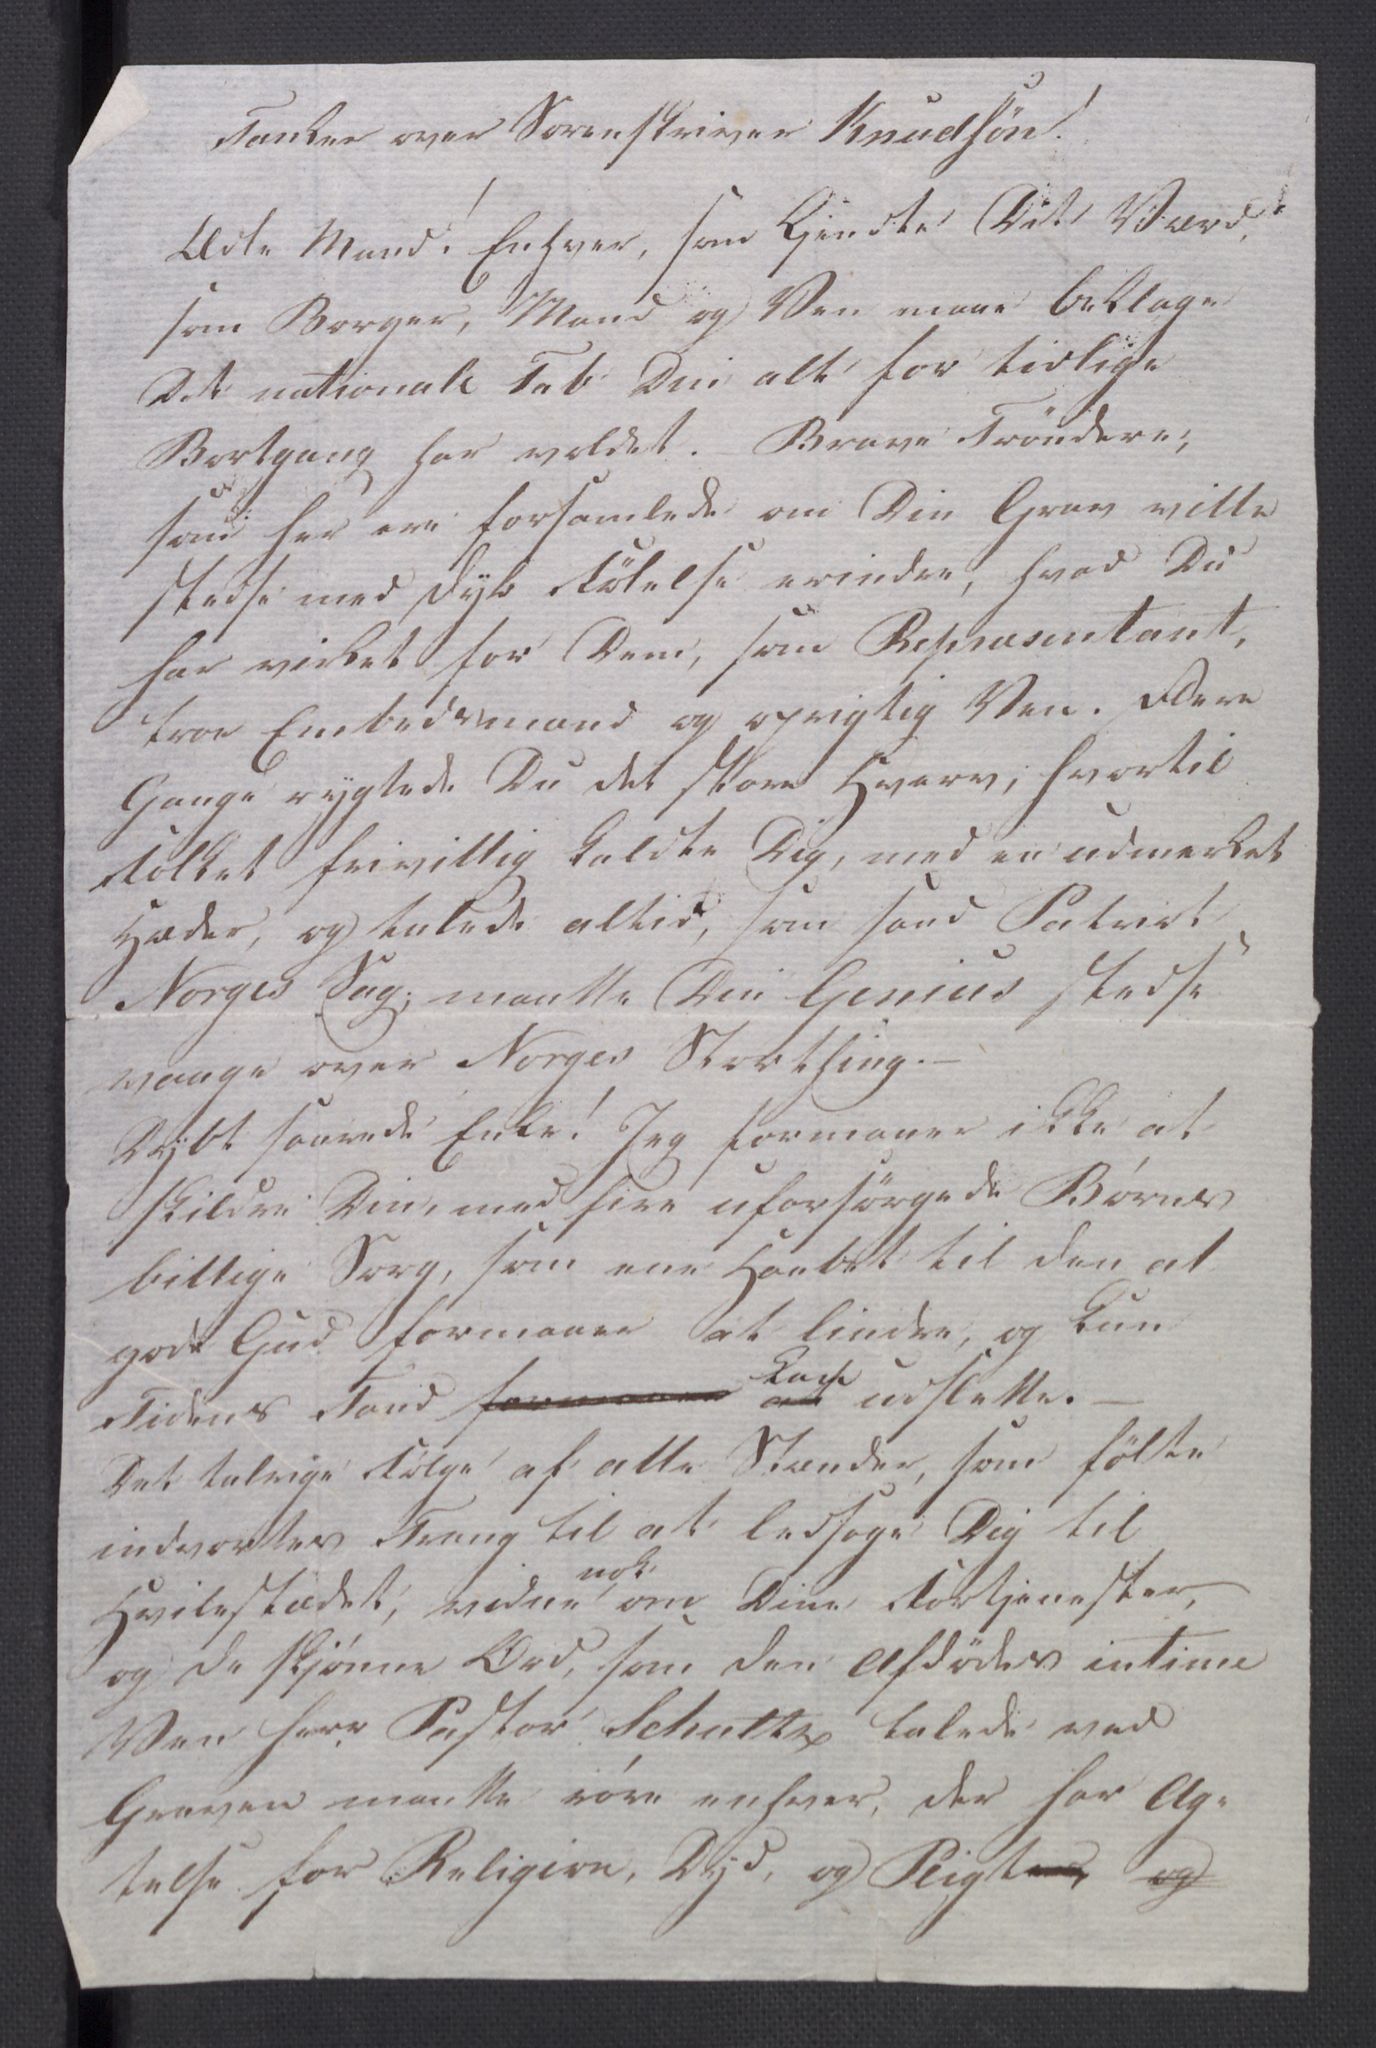 Tanker over Sorenskriver Knudssön!
Ædle Mand! Enhver, som kjendte Dit Værd,
som Borger, Mand og Ven maae beklage
Det nationale Tab Din alt for tidlige
Bortgang har voldet. Brave Tröndere,
som her ere forsamlede om Din Grav ville
stedse med dyb Følelse erindre, hvad Du
har virket for Dem, som Repræsentant,
troe Embedsmand og oprigtig Ven. Flere
Gange rygtede Du det store Hverv, hvortil
Folket frivillig kaldte Dig, med en udmerket
Hæder, og talede altid, som sand Patriot
Norges Sag; maatte Din Genius stedse
vaage over Norges Storthing. —
Dybt saarede Enke! Jeg formaaer ikke at
skildre Din, med fire uforsörgede Børnes
billige Sorg, som ene Haabet til den al
gode Gud formaaer at lindre, og kun
Tidens Tand formaaer at kan udslette. —
Det talrige Følge af alle Stænder, som fölte
indvortes Trang til at ledsage Dig til
Hvilestædet, vidne nok om Dine Fortjenester,
og de skjönne Ord, som den Afdödes intime
Ven Herr Pastor Schultz talede ved
Graven maatte röre enhver, der har Ag-
telse for Religion, Dyd, og Pligter, og